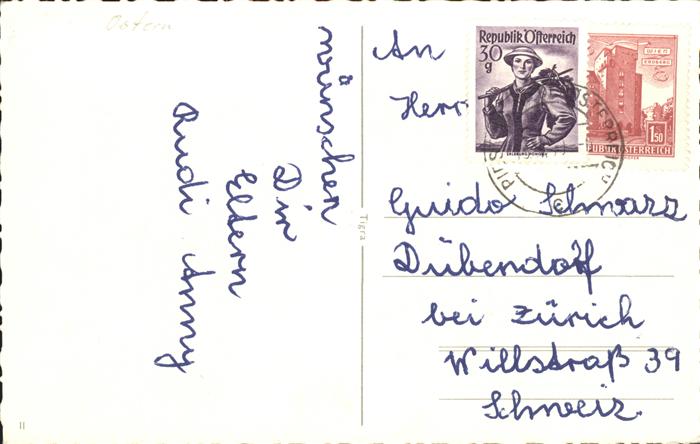 Ostern
wünschen
Dir
Eltern
Rudi Anny
Tigra
II
An
Herr
Guido Schwarz
Dübendorf
bei Zürich
Willstraß 39
Schweiz.
Republik Österreich
30
g
WIEN
ERDBERG
1,50
REPUBLIK ÖSTERREICH
ÖSTERREICH